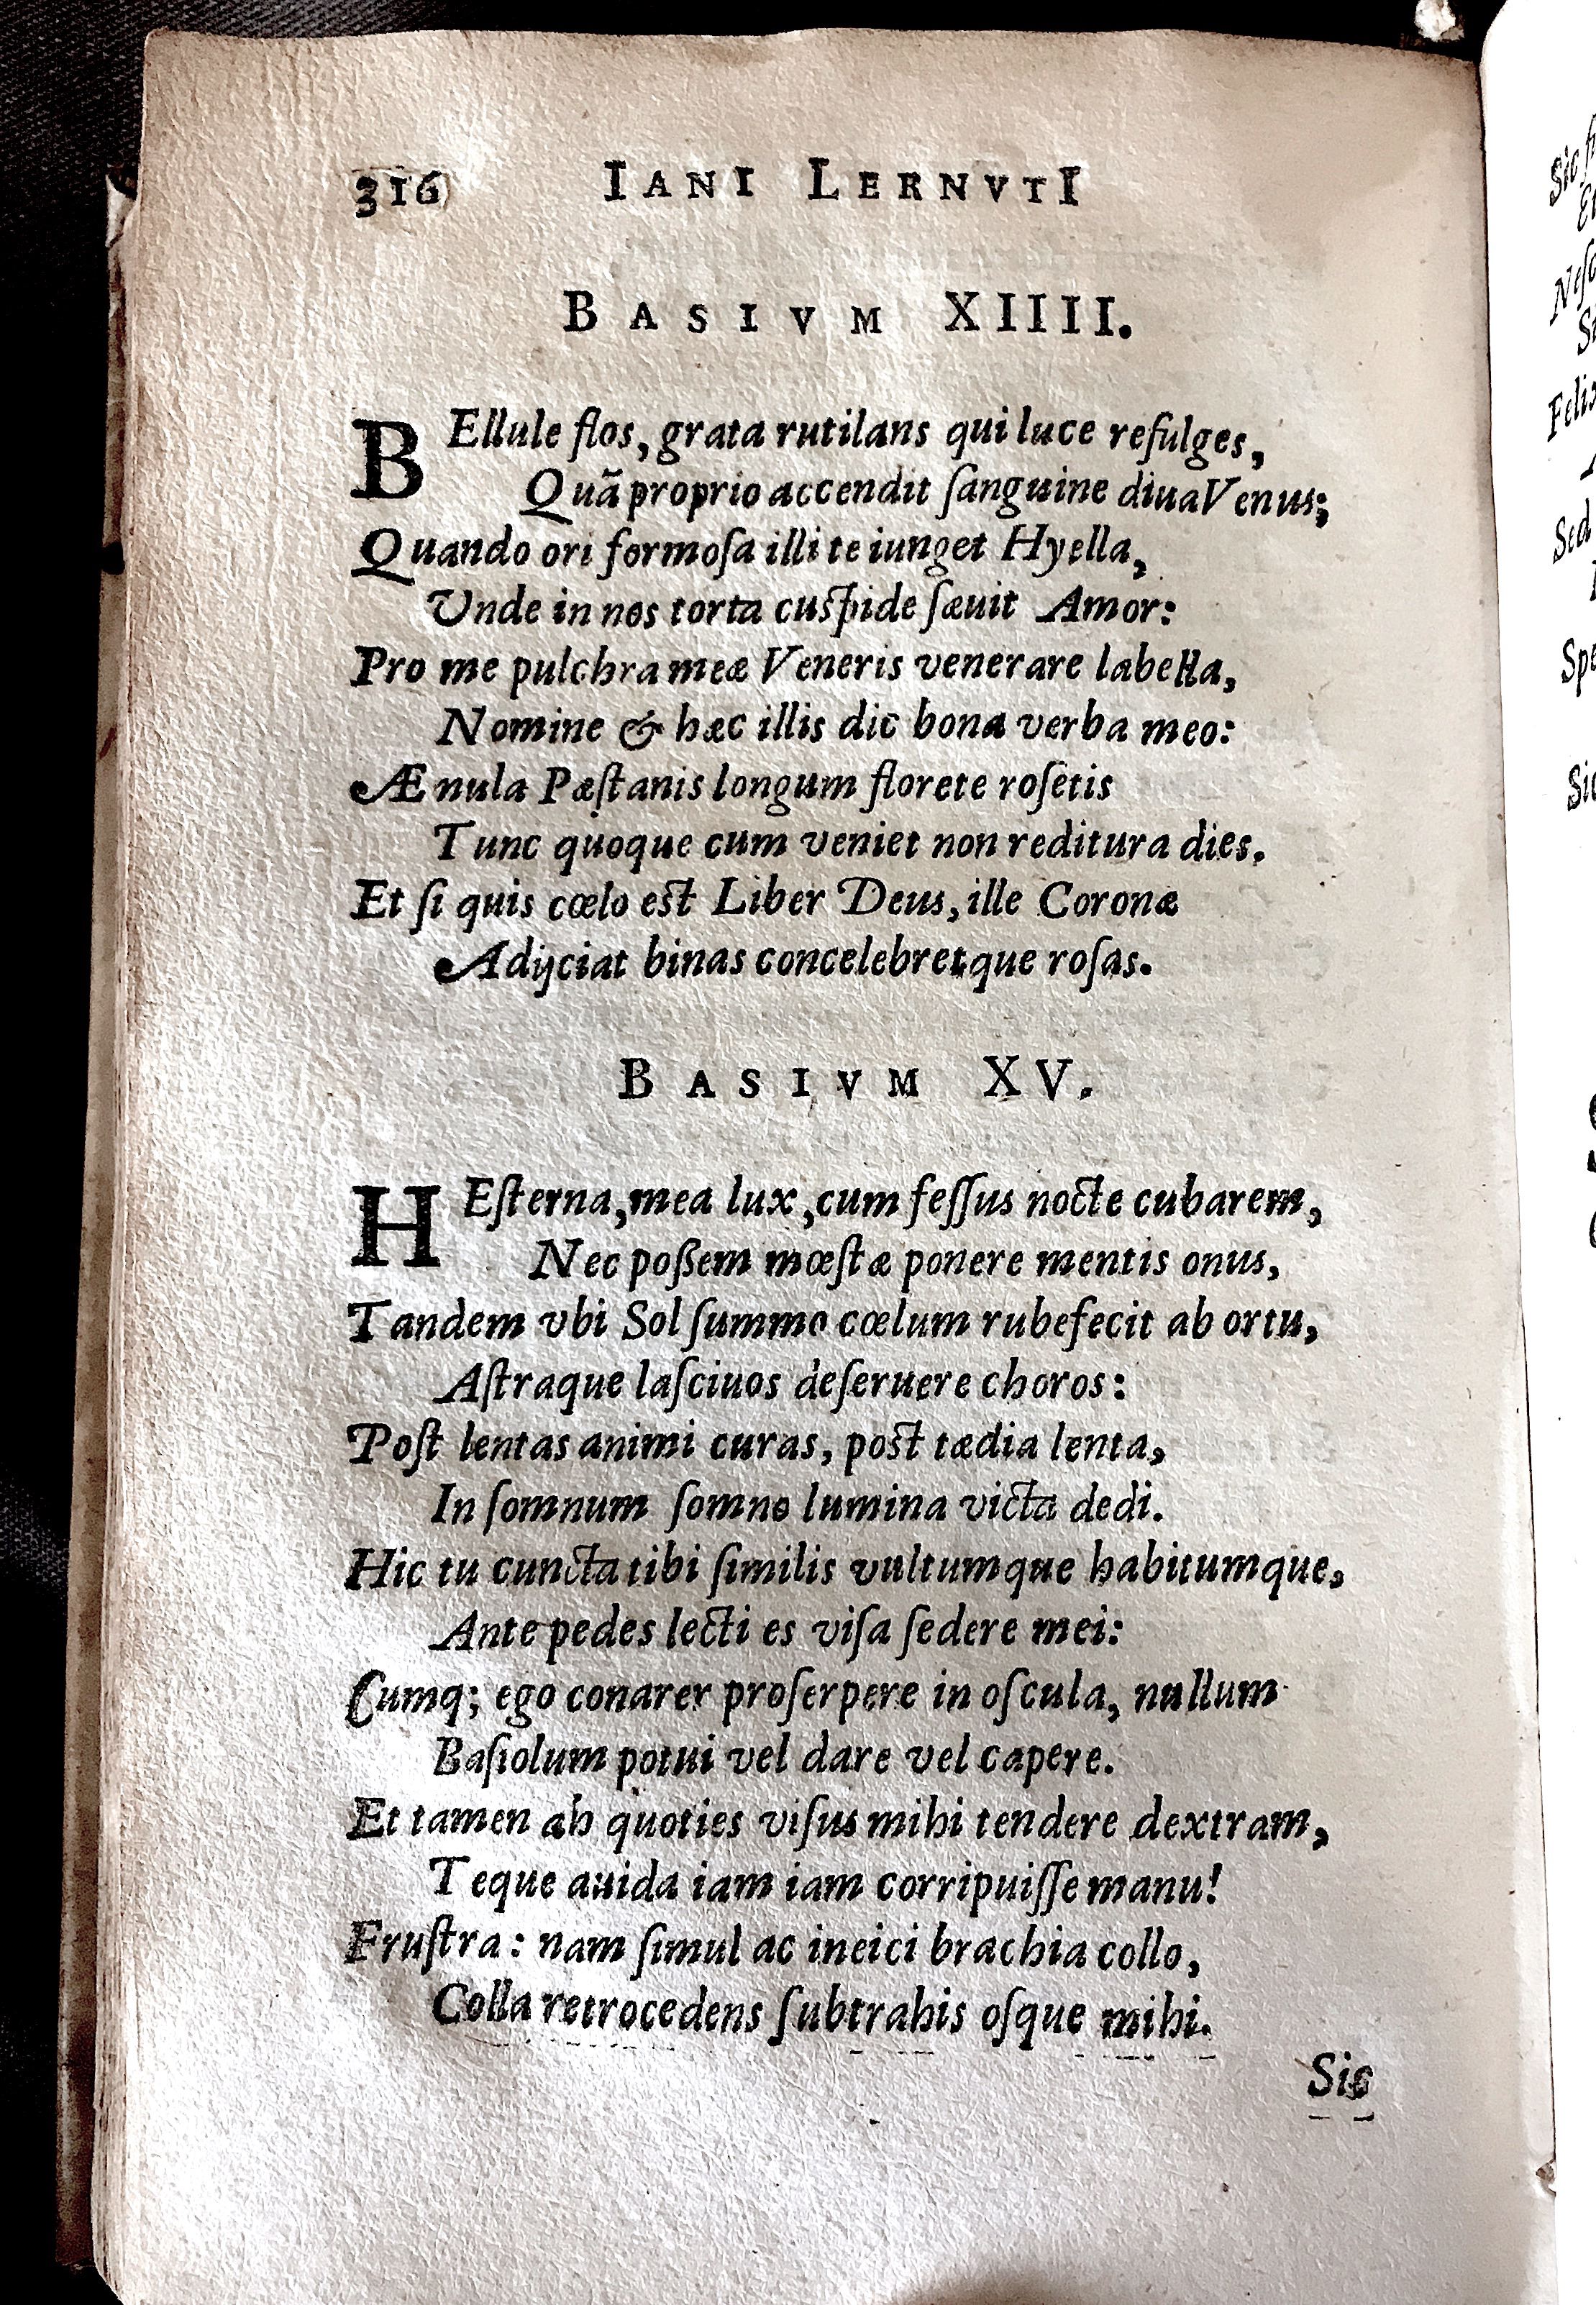 316 IANI LERNVTI
BASIVM XIIII.
BEllule flos, grata rutilans qui luce refulges,
Quã proprio accendit ſanguine diua Venus;
Quando ori formoſa illi te iunget Hyella,
Unde in nos torta cuſpide ſæuit Amor:
Pro me pulchra meæ Veneris venerare labella,
Nomine & hæc illis dic bona verba meo:
Æmula Pæſtanis longum florete roſetis
Tunc quoque cum veniet non reditura dies.
Et ſi quis cœlo eſt Liber Deus, ille Coronæ
Adijciat binas concelebretque roſas.
BASIVM XV.
HEſterna, mea lux, cum feſſus nocte cubarem,
Nec poßem mœſtæ ponere mentis onus,
Tandem vbi Sol ſummo cœlum rubefecit ab ortu,
Aſtraque laſciuos deſeruere choros:
Poſt lentas animi curas, poſt tædia lenta,
In ſomnum ſomno lumina victa dedi.
Hic tu cuncta tibi ſimilis vultumque habitumque,
Ante pedes lecti es viſa ſedere mei:
Cumq; ego conarer proſerpere in oſcula, nullum
Baſiolum potui vel dare vel capere.
Et tamen ah quoties viſus mihi tendere dextram,
Teque auida iam iam corripuiſſe manu!
Fruſtra: nam ſimul ac ineici brachia collo,
Colla retrocedens ſubtrahis oſque mihi.
Sic